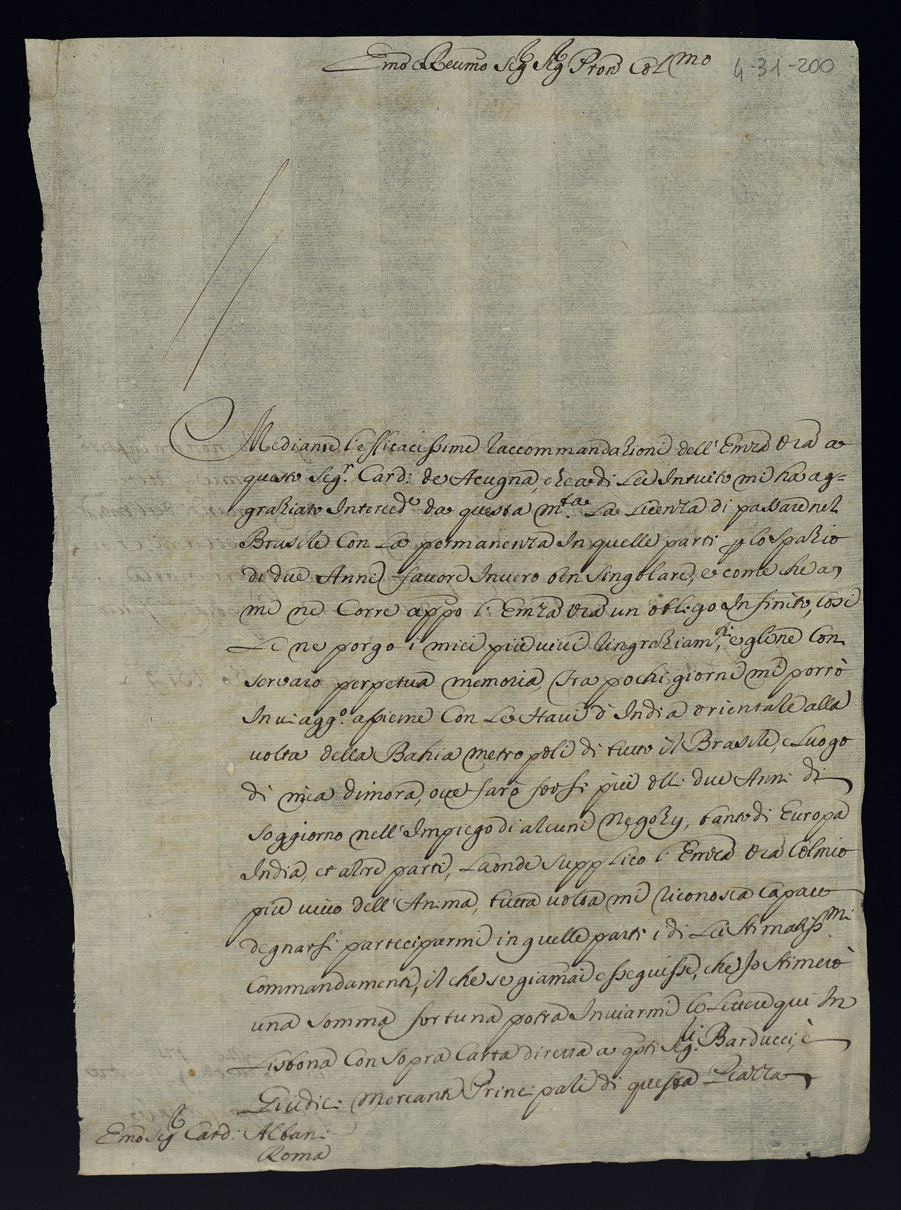 Emo e Reumo Sig Sig Pron Colmo
4-31-200
Mediante l'efficacissime raccommandazioni dell'Emza Vra a
questo Sigr. Card: de Acugna, che a di Lei Intuito mi ha ag-
graziato Interceder da questa Mtae. La Licenza di passare nel
Brasile Con La permanenza In quelle parti p lo Spazio
di due Anni favore Invero ben Singolare, e come che a
me ne Corre appo l'Emza Vra un obligo Infinito, cosi
Le ne porgo i miei più vivi ringraziamti, e gliene Con
servaro perpetua memoria, fra pochi giorni mi porrò
In viaggo. assieme Con Le Navi d'India Orientale alla
volta della Bahia metropoli di tutto il Brasile, e Luogo
di mia dimora, ove farò forsi più dlli due Anni di
Soggiorno nell'Impiego di alcuni Negozy, tanto di Europa
India, et altre parti, Laonde Supplico l'Emza Vra Colmio
più vivo dell'Anima, tutta volta mi riconosca Capace
degnarsi parteciparmi in quelle parti i di Lei Stimatissmi
Commandamenti, il che se giamai esseguisse, che Io Stimerò
una somma fortuna potrà Inviarmi le Lettere qui In
Lisbona Con Sopra Carta diretta a qsti Sigri Barducci, è
Giudici Mercanti Principali di questa Piazza
Emo Sig Card: Albani
Roma